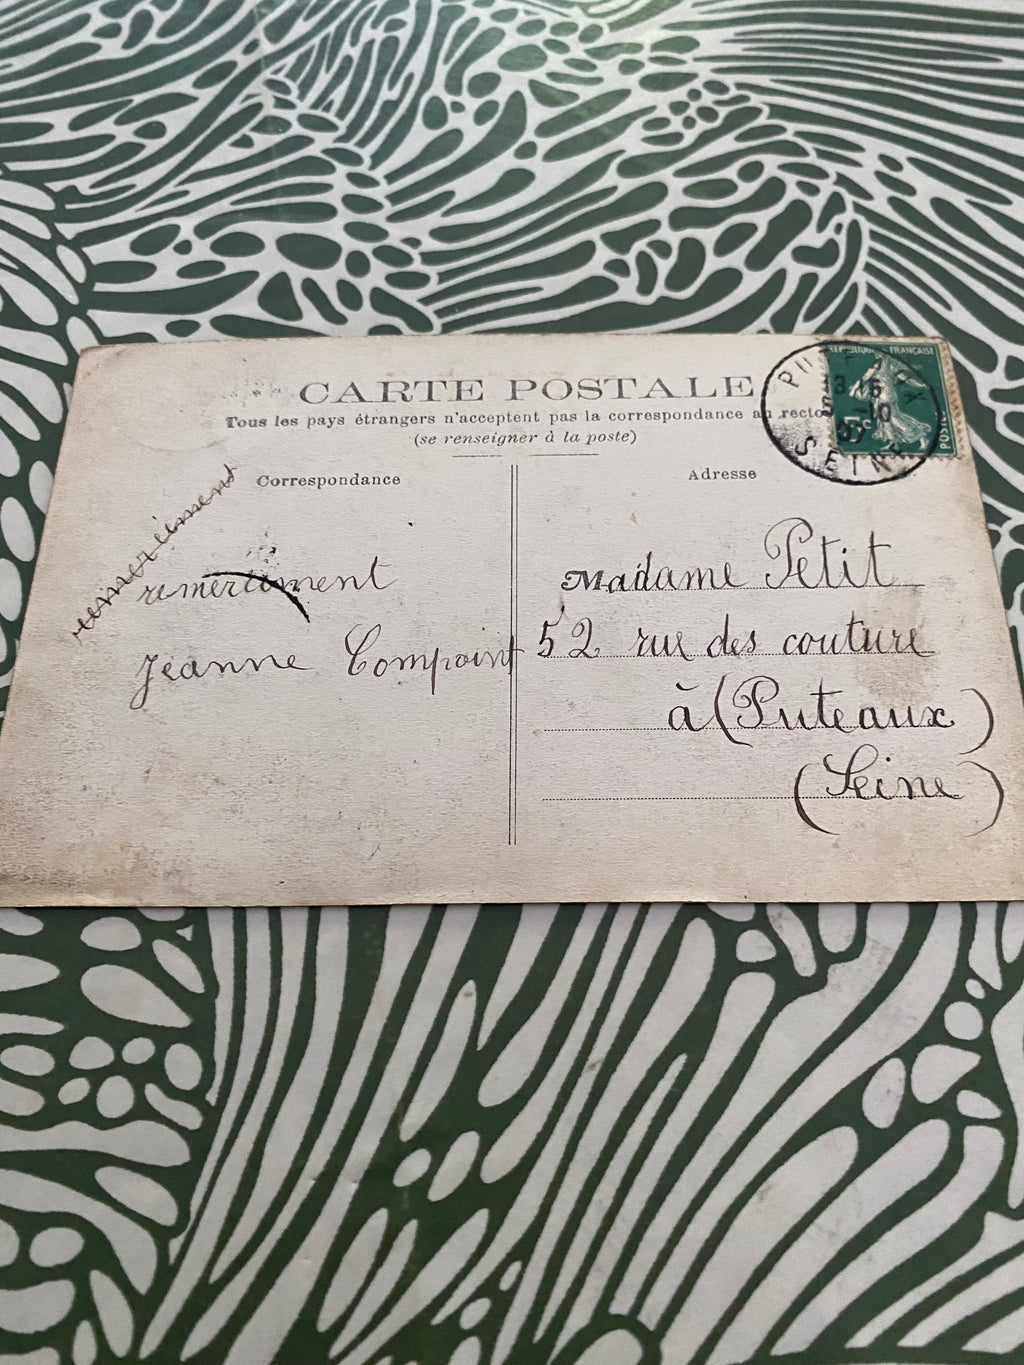 CARTE POSTALE
Tous les pays étrangers n'acceptent pas la correspondance au recto
(se renseigner à la poste)
Correspondance
remerciement
remerciment
Jeanne Compoint
Adresse
Madame Petit
52 rue des couture
à (Puteaux)
(Seine)
RÉPUBLIQUE FRANÇAISE
POSTES
SEINE